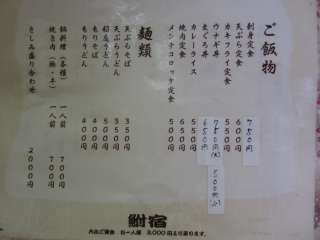 ご飯物
刺身定食 750円
天ぷら定食 600円
カキフライ定食 550円
ウナギ丼 750円(大) 500円(小)
まぐろ丼 650円
カレーライス 500円
焼肉定食 550円
メンチコロッケ定食 550円
麺類
天ぷらそば 350円
天ぷらうどん 350円
鍋焼うどん 500円
もりそば 400円
もりうどん 400円
鍋料理(各種) 一人前 700円
焼き肉(豚・牛) 一人前 700円
さしみ盛り合わせ 2000円
鮒宿
内お二階会 お一人様 3,000円より承ります。